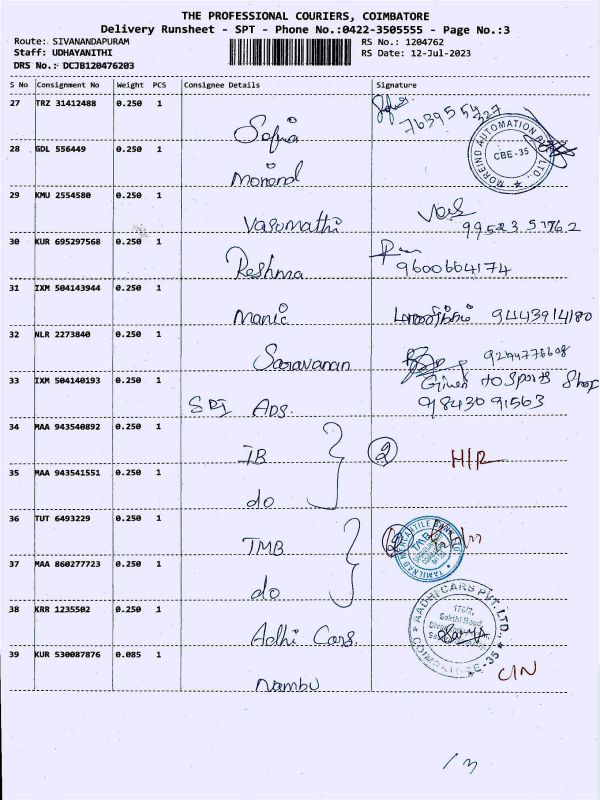 THE PROFESSIONAL COURIERS, COIMBATORE
Delivery Runsheet - SPT - Phone No.:0422-3505555 - Page No.:3
Route: SIVANANDAPURAM RS No.: 1204762
Staff: UDHAYANITHI RS Date: 12-Jul-2023
DRS No.: DCJB120476203
S No Consignment No Weight PCS Consignee Details Signature
27 TRZ 31412488 0.250 1 Sofia 7639554727
28 GDL 556449 0.250 1 MOREIND AUTOMATION CBE-35
29 KMU 2554580 0.250 1 Vasumathi
30 KUR 695297568 0.250 1 Reshma 9600664174
31 IXM 504143944 0.250 1 Manic 9443914180
32 NLR 2273840 0.250 1 Saravanan
33 IXM 504140193 0.250 1 SDI Ads. Given to Sports Shop
9843091563
34 MAA 943540892 0.250 1 IB 2 H/R
35 MAA 943541551 0.250 1 do
36 TUT 6493229 0.250 1 TMB TAMILNAD MERCANTILE BANK LTD TMB
37 MAA 860277723 0.250 1 do
38 KRR 1235502 0.250 1 Adhi Cars. AADHI CARS PVT. LTD. Sakthi Road, COIMBATORE-35
39 KUR 530087876 0.085 1 Nambu C/N
/3